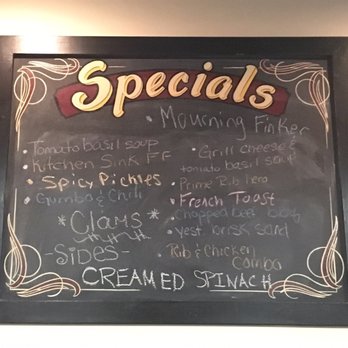 Specials
• Mourning Finker
• Tomato basil soup
• Kitchen Sink FF
• Spicy Pickles
• Gumbo & Chili
*Clams*
-Sides-
• Grill cheese &
tomato basil soup
• Prime Rib hero
• French Toast
• Chopped
• vest brisk sand
• Rib & Chicken
Combo
CREAMED SPINACH